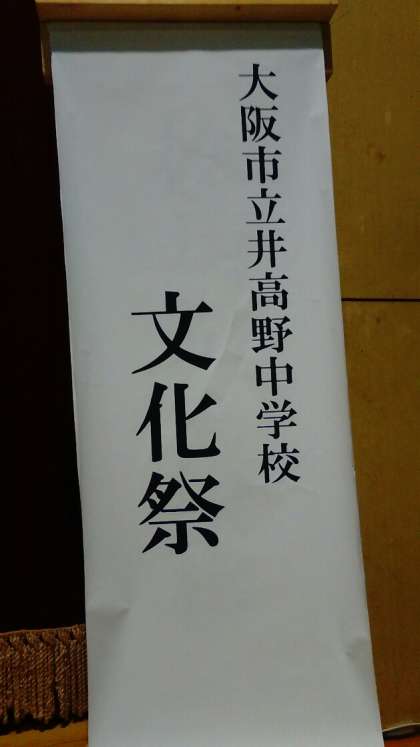 大阪市立井高野中学校
文化祭